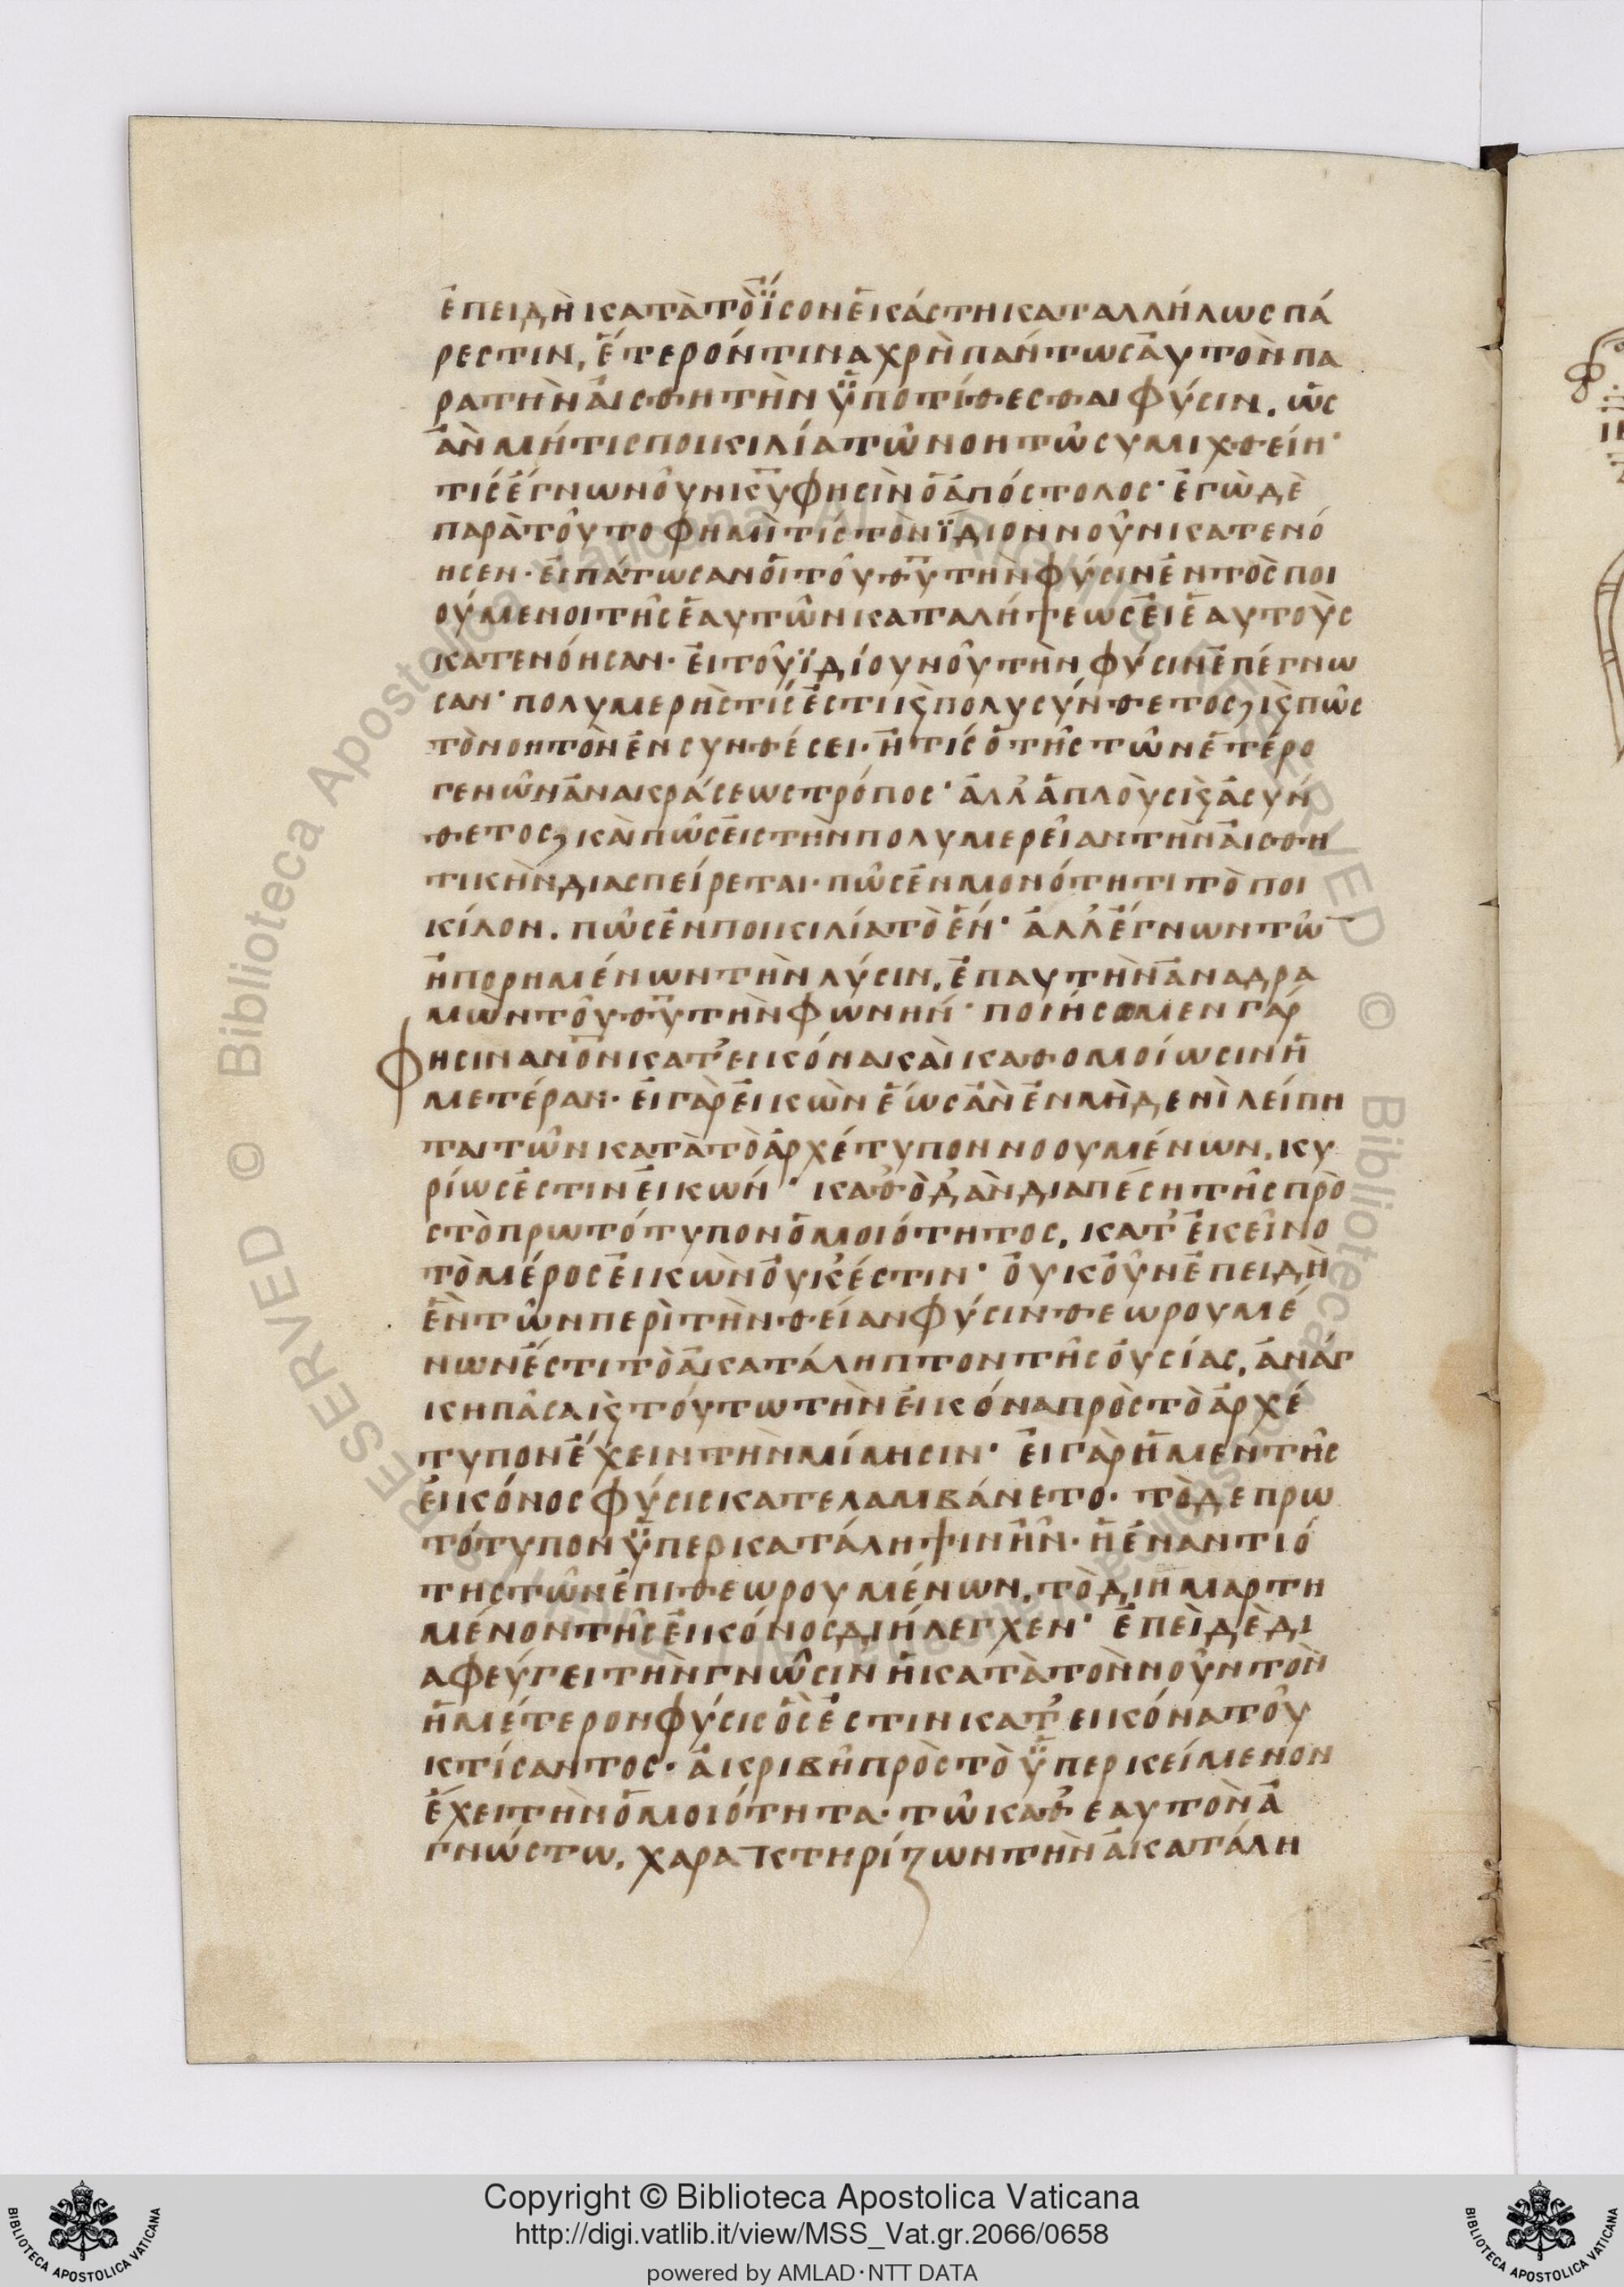 ἐπειδὴ κατὰ τὸ ἴσον ἑκάστη καταλλήλως πά
ρεστιν, ἕτερόν τινα χρὴ πάντως ἀυτὸν πα
ρὰ τὴν ἀισθητὴν ὑποτίθεσθαι φύσιν. ὡς
ἂν μή τις ποικιλία τῶ νοητῶ συμιχθείη·
τίς ἔγνω νοῦν κ̅υ̅ φησὶν ὁ ἀπόστολος· ἐγὼ δὲ
παρὰ τοῦτο φημὶ τίς τὸν ἴδιον νοῦν κατενό
ησεν· ἐιπάτωσαν ὁι τοῦ θ̅υ̅ τὴν φύσιν ἐντὸς ποι
ούμενοι τῆς ἑαυτῶν καταλήψεως ἐι ἑαυτοὺς
κατενόησαν· ἐι τοῦ ϊδίου νοῦ τὴν φύσιν ἐπέγνω
σαν· πολυμερής τίς ἐστι κ̀ πολυσύνθετος, κ̀ πῶς
τὸ νοητὸν ἐν συνθέσει· ἢ τίς ὁ τῆς τῶν ἑτερο
γενῶν ἀνακράσεως τρόπος· ἀλλ' ἁπλοὺς κ̀ ἀσύν
θετος, καὶ πῶς ἐις τὴν πολυμερεῖαν τὴν ἀισθη
τικὴν διασπείρεται· πῶς ἐν μονότητι τὸ ποι
κίλον. πῶς ἐν ποικιλία τὸ ἕν· ἀλλ' ἔγνων τῶ̅
ἠπορημένων τὴν λύσιν, ἐπ αυτὴν ἀναδρα
μὼν τοῦ θ̅υ̅ τὴν φωνήν· ποιήσωμεν γάρ
φησιν α̅ν̅ο̅ν̅ κατ' εικόνα καὶ καθ ομοίωσιν ἡ
μετέραν· ἐι γὰρ ἐικὼν ἕως ἂν ἐν μὴδενὶ λείπη
ται τῶν κατὰ τὸ ἀρχέτυπον νοουμένων, κυ
ρίως ἐστὶν ἐικών· καθ' ὃ δ' ἂν διαπέση τῆς πρὸ
ς τὸ πρωτότυπον ὁμοιότητος, κατ' ἐκεῖνο
τὸ μέρος ἐικὼν ὀυκ ἔστιν· ὀυκοῦν ἐπειδὴ
ἓν τῶν περὶ τὴν θείαν φύσιν θεωρουμέ
νων ἐστὶ τὸ ἀκατάληπτον τῆς ὀυσίας, ἀνάγ
κη πᾶσα κ̀ τόυτω τὴν ἐικόνα πρὸς τὸ ἀρχέ
τυπον ἔχειν τὴν μίμησιν· ἐι γὰρ ἡ μεν τῆς
ἐικόνος φύσις κατελαμβάνετο· τὸ δε πρω
τότυπον ὑπερ κατάληψιν ἦν· ἡ ἐναντιό
της τῶν ἐπιθεωρουμένων, τὸ διημαρτη
μένον τῆς ἐικόνος διήλεγχεν· ἐπεὶ δὲ δι
αφεύγει τὴν γνῶσιν ἡ κατὰ τὸν νοῦν τὸν
ἡμέτερον φύσις ὅς ἐστιν κατ' εικόνα τοῦ
κτίσαντος· ἀκριβῆ πρὸς τὸ ὑπερκείμενον
ἔχει τὴν ὁμοιότητα· τῶ καθ' εαυτὸν ἀ
γνώστω, χαρακτηρίζων τὴν ἀκατάλη
Copyright © Biblioteca Apostolica Vaticana
http://digi.vatlib.it/view/MSS_Vat.gr.2066/0658
powered by AMLAD·NTT DATA